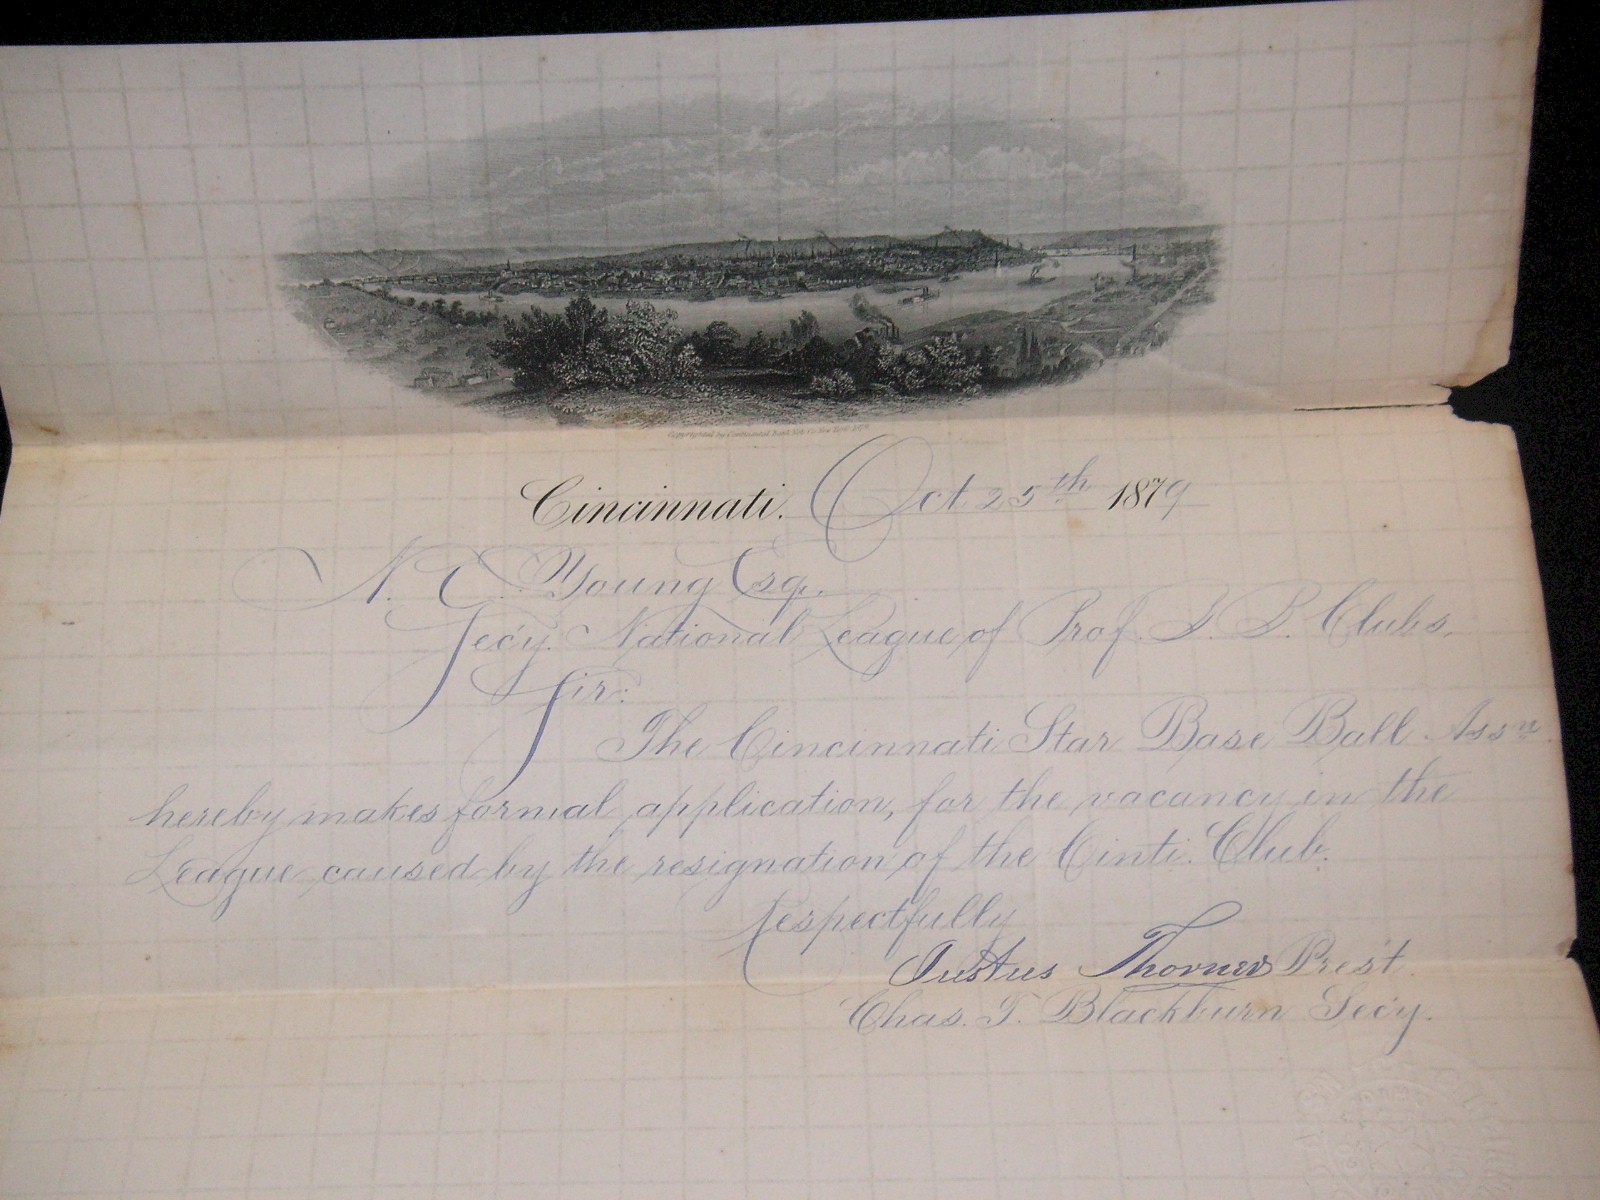 Copyrighted by Continental Bank Note Co. New York 187
Cincinnati. Oct 25th 1879
N. E. Young Esq.
Sec'y. National League of Prof. B. B. Clubs,
Sir:
The Cincinnati Star Base Ball Assn
hereby makes formal application, for the vacancy in the
League caused by the resignation of the Cinti. Club.
Respectfully
Justus Thorner Prest.
Chas. T. Blackburn Sec'y.